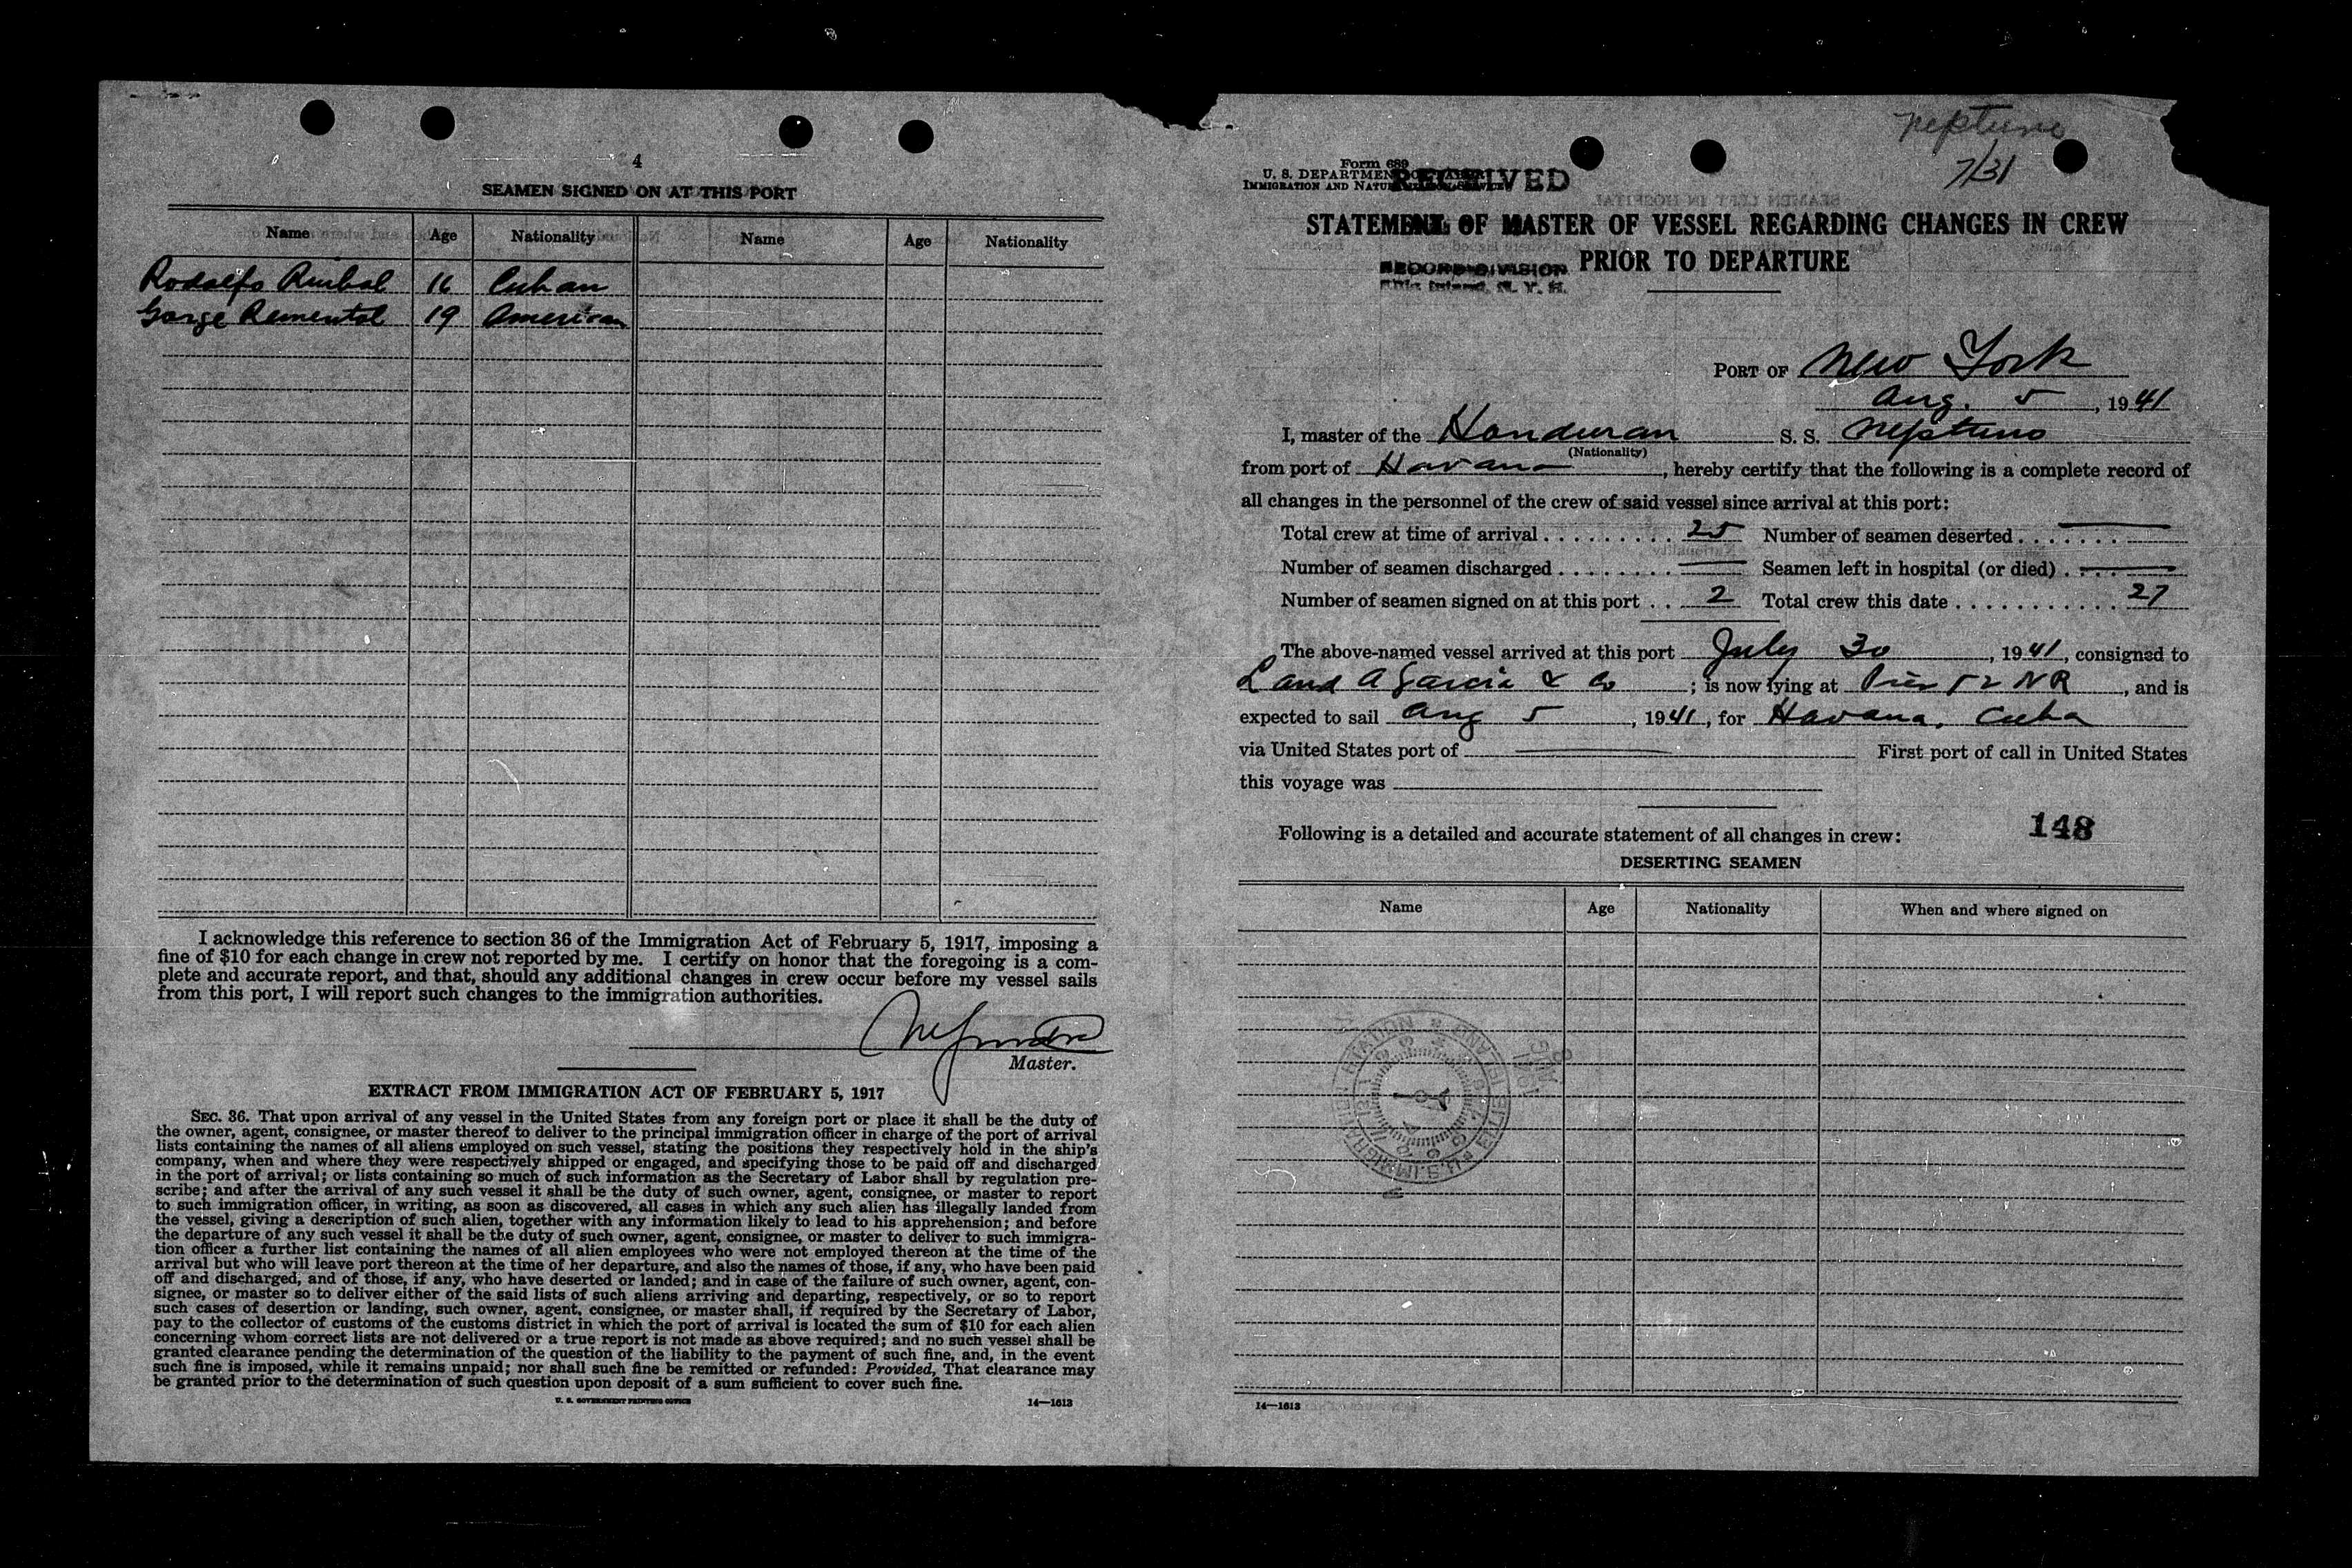 4
SEAMEN SIGNED ON AT THIS PORT
Name Age Nationality Name Age Nationality
Rodolfo 16 Cuban
19 American
I acknowledge this reference to section 36 of the Immigration Act of February 5, 1917, imposing a
fine of $10 for each change in crew not reported by me. I certify on honor that the foregoing is a com-
plete and accurate report, and that, should any additional changes in crew occur before my vessel sails
from this port, I will report such changes to the immigration authorities.
Master.
EXTRACT FROM IMMIGRATION ACT OF FEBRUARY 5, 1917
SEC. 36. That upon arrival of any vessel in the United States from any foreign port or place it shall be the duty of
the owner, agent, consignee, or master thereof to deliver to the principal immigration officer in charge of the port of arrival
lists containing the names of all aliens employed on such vessel, stating the positions they respectively hold in the ship's
company, when and where they were respectively shipped or engaged, and specifying those to be paid off and discharged
in the port of arrival; or lists containing so much of such information as the Secretary of Labor shall by regulation pre-
scribe; and after the arrival of any such vessel it shall be the duty of such owner, agent, consignee, or master to report
to such immigration officer, in writing, as soon as discovered, all cases in which any such alien has illegally landed from
the vessel, giving a description of such alien, together with any information likely to lead to his apprehension; and before
the departure of any such vessel it shall be the duty of such owner, agent, consignee, or master to deliver to such immigra-
tion officer a further list containing the names of all alien employees who were not employed thereon at the time of the
arrival but who will leave port thereon at the time of her departure, and also the names of those, if any, who have been paid
off and discharged, and of those, if any, who have deserted or landed; and in case of the failure of such owner, agent, con-
signee, or master so to deliver either of the said lists of such aliens arriving and departing, respectively, or so to report
such cases of desertion or landing, such owner, agent, consignee, or master shall, if required by the Secretary of Labor,
pay to the collector of customs of the customs district in which the port of arrival is located the sum of $10 for each alien
concerning whom correct lists are not delivered or a true report is not made as above required; and no such vessel shall be
granted clearance pending the determination of the question of the liability to the payment of such fine, and, in the event
such fine is imposed, while it remains unpaid; nor shall such fine be remitted or refunded: Provided, That clearance may
be granted prior to the determination of such question upon deposit of a sum sufficient to cover such fine.
U. S. GOVERNMENT PRINTING OFFICE 14—1613
Neptuno
7/31
Form 689
U. S. DEPARTMENT OF LABOR
IMMIGRATION AND NATURALIZATION SERVICE
RECEIVED
STATEMENT OF MASTER OF VESSEL REGARDING CHANGES IN CREW
PRIOR TO DEPARTURE
RECORD DIVISION
Ellis Island, N. Y. H.
PORT OF New York
Aug. 5, 1941
I, master of the Honduran S. S. Neptuno
(Nationality)
from port of Havana, hereby certify that the following is a complete record of
all changes in the personnel of the crew of said vessel since arrival at this port:
Total crew at time of arrival . . . . . . . . . 25 Number of seamen deserted . . . . . . . —
Number of seamen discharged . . . . . . . . — Seamen left in hospital (or died) . . . . —
Number of seamen signed on at this port . . 2 Total crew this date . . . . . . . . . . . 27
The above-named vessel arrived at this port July 30, 1941, consigned to
L and A Garcia & Co; is now lying at Pier 52 NR, and is
expected to sail Aug 5, 1941, for Havana, Cuba
via United States port of — First port of call in United States
this voyage was
Following is a detailed and accurate statement of all changes in crew:
148
DESERTING SEAMEN
Name Age Nationality When and where signed on
14—1613